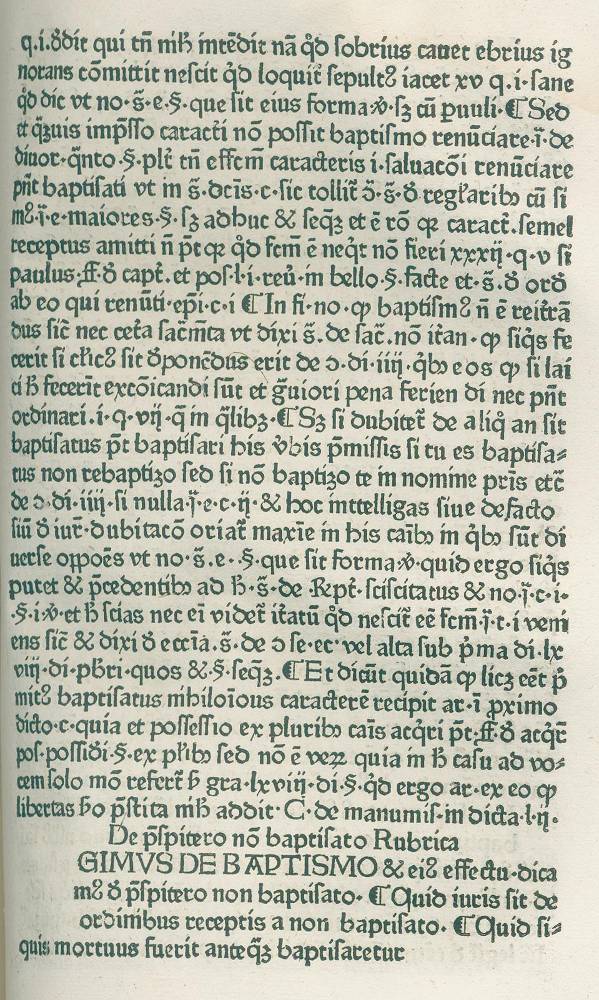 q.i.ꝺdit qui tñ nıħ intēdit nā q̇d sobrius cauet ebrius ig
norans cōmittit nescit q̇d loquit̃ sepultꝰ iacet xv q.i.sane
q̇d dic vt no.s̃.e.§.que sit eius forma.ꝟ.sꝫ cū puuli.¶Sed
et q̄ꝫuis imp̄sso caract̃i nō possit baptismo renūciare.ī.de
diuor.q̄nto.§.plt̃ tñ effcm̄ caracteris i.saluacōi renūciare
pn̄t baptisati vt in s̃.dcīs.c.sic tollit̃ ↄ̄.s̃.ꝺ reglarib⁹ cū si
mꝰ.ī.e.maiores.§.sꝫ adhuc & seq̄ꝫ et ē rō qꝛ caract̃.semel
receptus amitti ñ p̄t qꝛ q̇d fcm̄ ē neq̇t nō fieri xxxij.q.v si
paulus.ff.ꝺ capt̃.et pos.l.i.reu̇.in bello.§.facte et.s̃.ꝺ ord
ab eo qui renūti.ep̄i.c.i ¶In fi.no.ꝙ baptismꝰ ñ ē reit̃ā
dus sic̃ nec cet̃a sac̃m̄ta vt dixi s̃.de sac̃.nō it̃an.ꝙ siq̇s fe
cerit si cl̃icꝰ sit ꝺponēdus erit de ↄ.di.iiij.q̇b⁹ eos ꝙ si lai
ci ħ fecerīt excōicandi sūt et g̃uiori pena ferien di nec pn̄t
ordinari.i.q.vij.q̄ in q̇libꝫ.¶Sꝫ si dubitet̃ de aliq̇ an sit
baptisatus p̄t baptisari his v̇bis p̄missis si tu es baptisa-
tus non rebaptizo sed si nō baptizo te in nomine pr̄is etc̃
de ↄ.di.iiij.si nulla.ī.e.c.ij.& hoc inttelligas siue defacto
siū ꝺ iur̃.dubitacō oriat̃ maxīe in his cāib⁹ in q̇b⁹ sūt di
uerse oppoēs vt no.s̃.e..§.que sit forma.ꝟ.quid ergo siq̇s
putet & p̄cedentib⁹ ad ħ.s̃.de.Rept̃.sciscitatus & no.ī.c.i.
.§.i.ꝟ.et ħ scias nec eī videt̃ it̃atū q̇d nescit̃ eē fcm̄.ī.t.i veni
ens sic̃ & dixi ꝺ eccīa.s̃.de ↄse.ec̃ vel alta sub p̄ma di.lx
viij.di.pb̄ri.quos &.§.seq̄ꝫ.¶Et dicūt quidā ꝙ licꝫ eēt p̄
mitꝰ baptisatus nihiloīous caracterē recipit ar.i ꝓximo
dicto.c.quia et possessio ex plurib⁹ cāis acq̇ri p̄t.ff.ꝺ acq̇r̃
pos.possidi.§.ex pl̃ib⁹ sed nō ē veꝝ quia in ħ casu ad vo-
cem solo mō refert̃ ħ gra.lxviij.di.§.q̇d ergo ar.ex eo ꝙ
libertas ħo p̄stita nıħ addit.C.de manumis.in dicta.l.ij.
De p̄spitero nō baptisato Rubrica
GIMVS DE BAPTISMO & eiꝰ effectu.dica
mꝰ ꝺ p̄spitero non baptisato.¶Quid iuris sit de
ordinibus receptis a non baptisato.¶Quid si-
quis mortuus fuerit anteq̄ꝫ baptisaretur